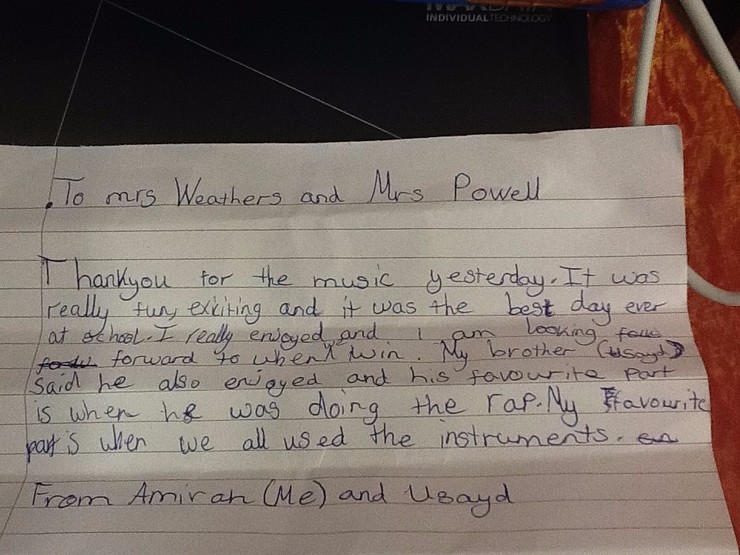 INDIVIDUAL TECHNOLOGY
To mrs Weathers and Mrs Powell
Thankyou for the music yesterday. It was
really fun, exiciting and it was the best day ever
at school. I really enjoyed and I am looking
forward to when I win. My brother (Usayd)
Said he also enjoyed and his favourite part
is when he was doing the rap. My favourite
part is when we all used the instruments.
From Amirah (Me) and Usayd